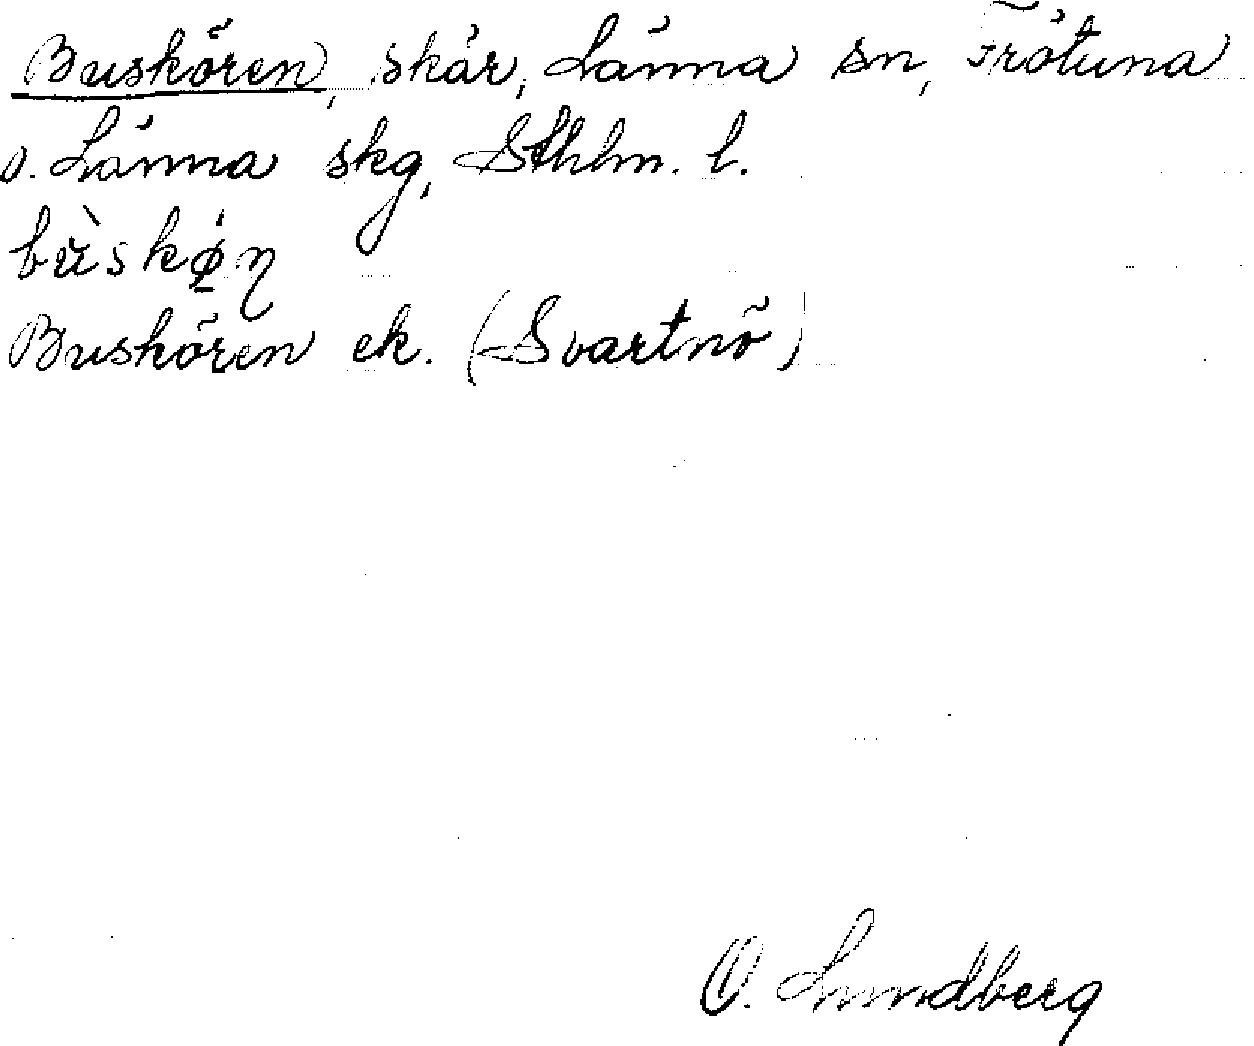 Buskören, skär, Länna sn, Frötuna
o. Länna skg, Sthlm. l.
bùskø̀ṇ
Buskören ek. (Svartnö)
O. Lundberg